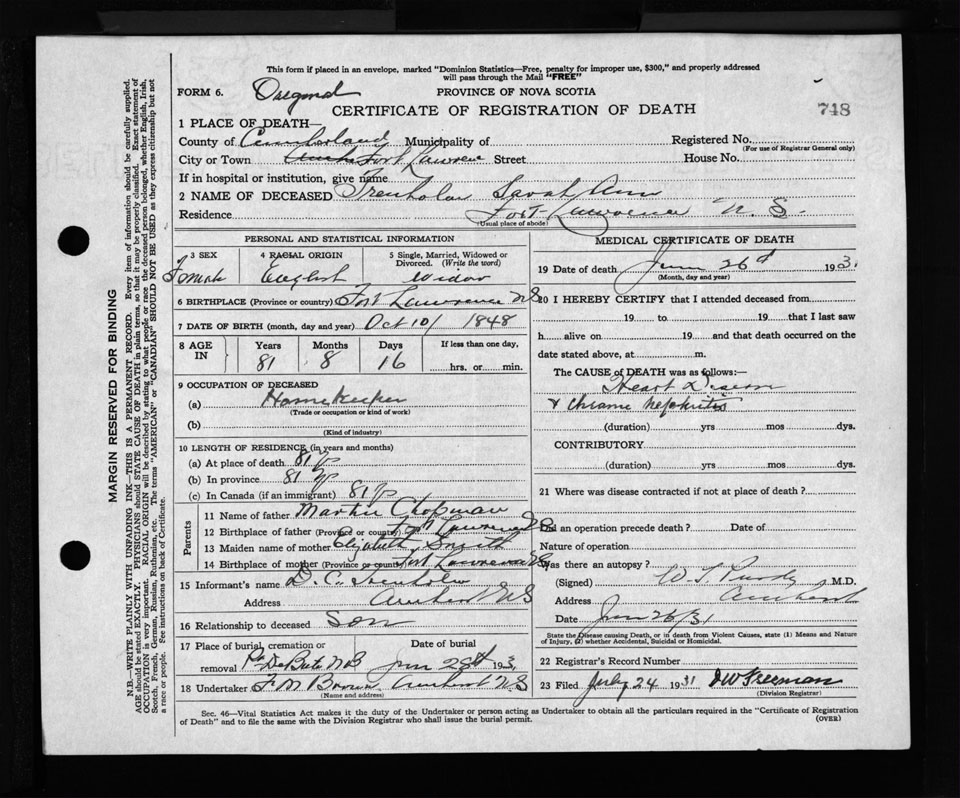 This form if placed in an envelope, marked "Dominion Statistics—Free, penalty for improper use, $300," and properly addressed
will pass through the Mail "FREE"
FORM 6.
PROVINCE OF NOVA SCOTIA
CERTIFICATE OF REGISTRATION OF DEATH
748
1 PLACE OF DEATH—
County of Cumberland Municipality of Registered No.
(For use of Registrar General only)
City or Town Fort Lawrence Street House No.
If in hospital or institution, give name
2 NAME OF DECEASED Trenholm Sarah Ann
Residence Fort Lawrence N.S.
(Usual place of abode)
PERSONAL AND STATISTICAL INFORMATION
3 SEX 4 RACIAL ORIGIN 5 Single, Married, Widowed or
Divorced. (Write the word)
Female English Widow
6 BIRTHPLACE (Province or country) Fort Lawrence NS
7 DATE OF BIRTH (month, day and year) Oct 10/ 1848
8 AGE IN Years Months Days If less than one day,
81 8 16 hrs. or min.
9 OCCUPATION OF DECEASED
(a) Homekeeper
(Trade or occupation or kind of work)
(b)
(Kind of industry)
10 LENGTH OF RESIDENCE (in years and months)
(a) At place of death 81
(b) In province 81
(c) In Canada (if an immigrant) 81
Parents
11 Name of father Martin Chapman
12 Birthplace of father (Province or country) Fort Lawrence NS
13 Maiden name of mother Elizabeth Smith
14 Birthplace of mother (Province or country) Fort Lawrence NS
15 Informant's name D. C. Trenholm
Address Amherst NS
16 Relationship to deceased Son
17 Place of burial, cremation or removal Date of burial
Pt DeBute NB June 28th 1931
18 Undertaker F M Brown Amherst NS
(Name and address)
MEDICAL CERTIFICATE OF DEATH
19 Date of death June 26th 1931
(Month, day and year)
20 I HEREBY CERTIFY that I attended deceased from
19 to 19 that I last saw
h alive on 19 and that death occurred on the
date stated above, at m.
The CAUSE OF DEATH was as follows:—
Heart Disease
& Chronic nephritis
(duration) yrs mos dys.
CONTRIBUTORY
(duration) yrs mos dys.
21 Where was disease contracted if not at place of death?
Did an operation precede death? Date of
Nature of operation
Was there an autopsy?
(Signed) W. T. Purdy M.D.
Address Amherst
Date June 26/31
State the Disease causing Death, or in death from Violent Causes, state (1) Means and Nature
of Injury, (2) whether Accidental, Suicidal or Homicidal.
22 Registrar's Record Number
23 Filed July 24 1931 DW Freeman
(Division Registrar)
Sec. 46—Vital Statistics Act makes it the duty of the Undertaker or person acting as Undertaker to obtain all the particulars required in the "Certificate of Registration
of Death" and to file the same with the Division Registrar who shall issue the burial permit.
(OVER)
MARGIN RESERVED FOR BINDING
N.B.—WRITE PLAINLY WITH UNFADING INK—THIS IS A PERMANENT RECORD. Every item of information should be carefully supplied.
AGE should be stated EXACTLY. PHYSICIANS should STATE CAUSE OF DEATH in plain terms, so that it may be properly classified. Exact statement of
OCCUPATION is very important. RACIAL ORIGIN will be described by stating to what people or race the deceased person belonged, whether English, Irish,
Scotch, French, German, Russian, Ruthenian, etc. The terms "AMERICAN" or "CANADIAN" SHOULD NOT BE USED as they express citizenship but not
a race or people. Fee instructions on back of Certificate.